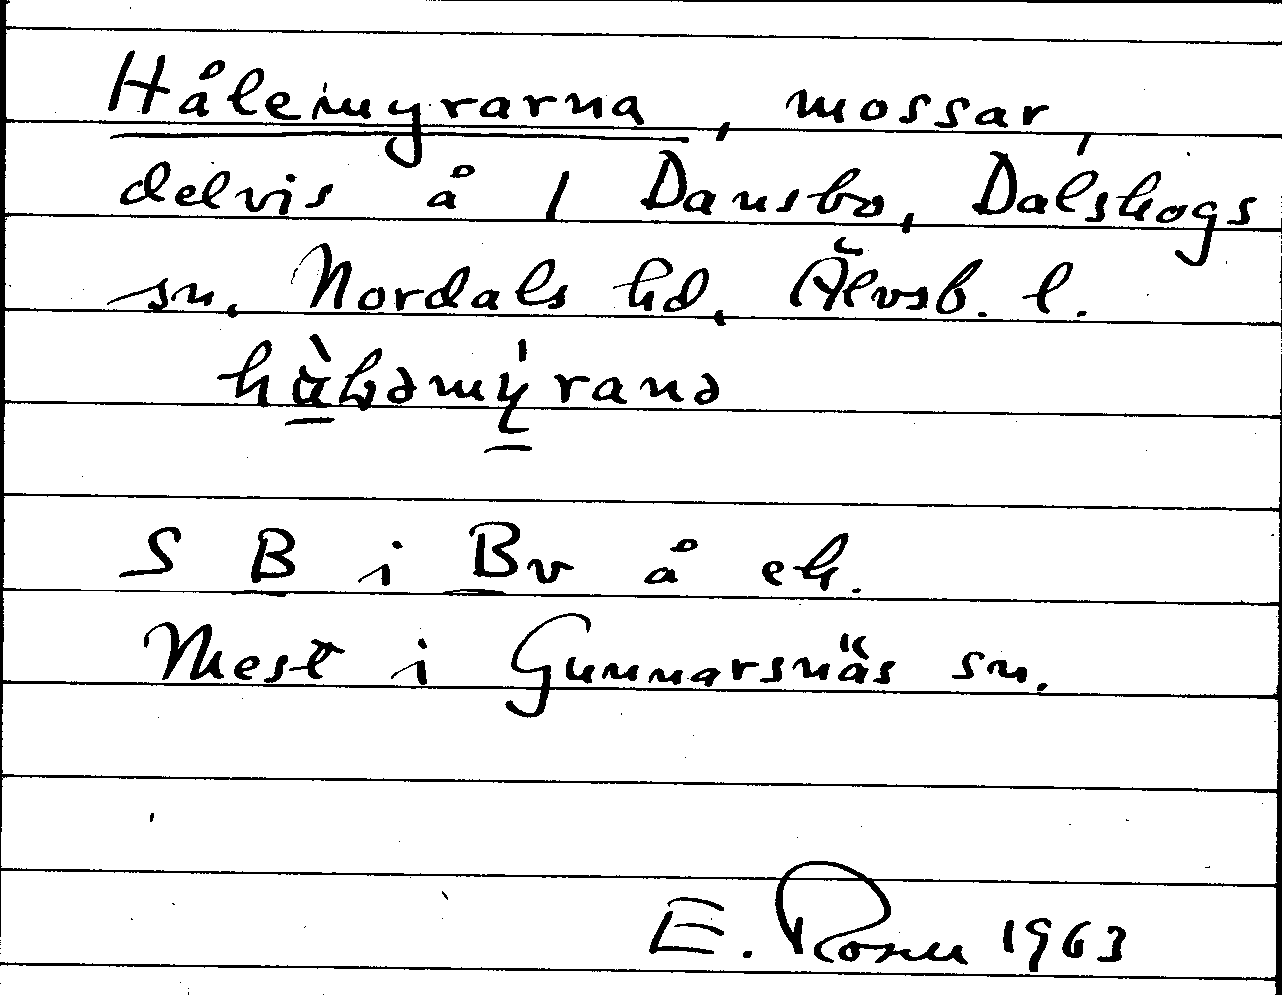 Hålemyrarna, mossar,
delvis å 1 Dansbo, Dalskogs
sn, Nordals hd, Älvsb. l.
S B i Bv å ek.
Mest i Gunnarsnäs sn.
E. Rosell 1963